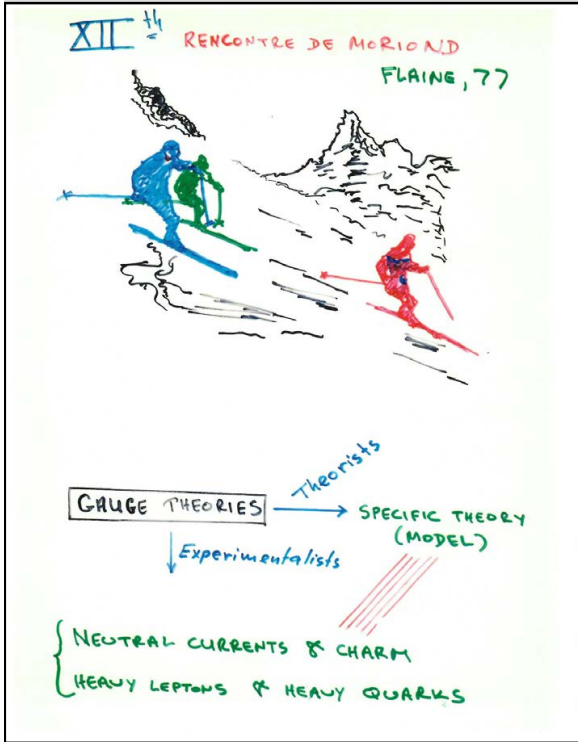 XII th RENCONTRE DE MORIOND
FLAINE, 77
Theorists
GAUGE THEORIES
SPECIFIC THEORY
(MODEL)
Experimentalists
NEUTRAL CURRENTS & CHARM
HEAVY LEPTONS & HEAVY QUARKS